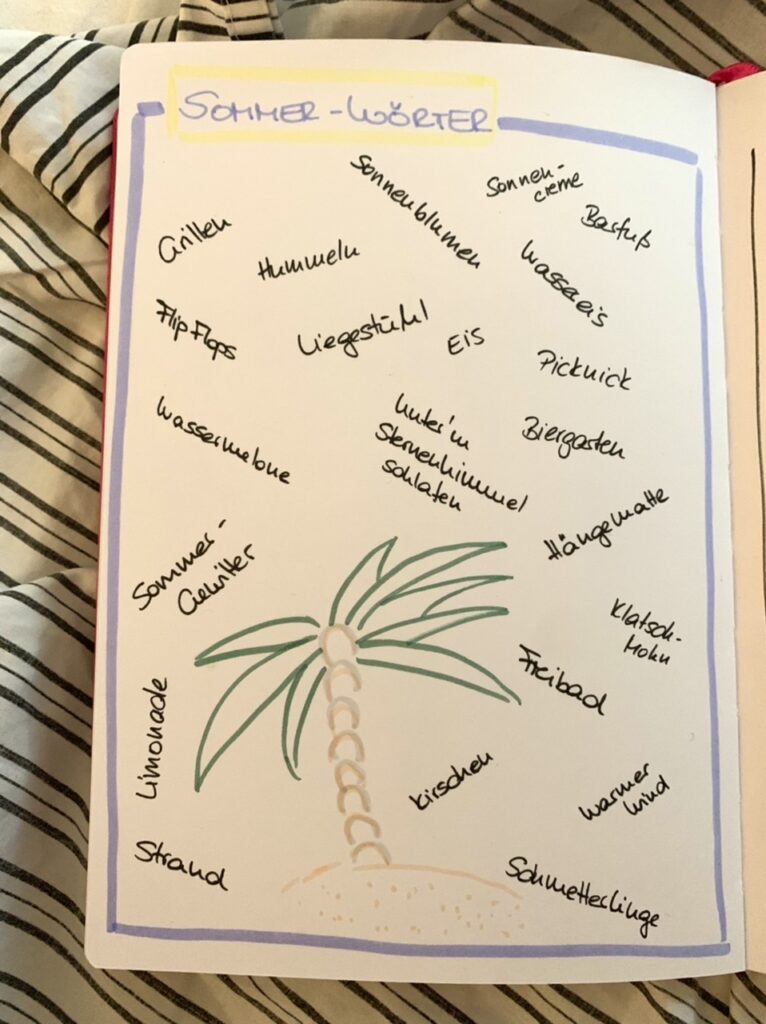 SOMMER-WÖRTER
Sonnenblumen
Sonnen-
creme
Barfuß
Grillen
Hummeln
Wassereis
Flip Flops
Liegestühl
Eis
Picknick
Wassermelone
Unter'm
Sternenhimmel
schlafen
Biergarten
Hängematte
Sommer-
Gewitter
Klatsch-
Mohn
Freibad
Limonade
Kirschen
warmer
Wind
Strand
Schmetterlinge